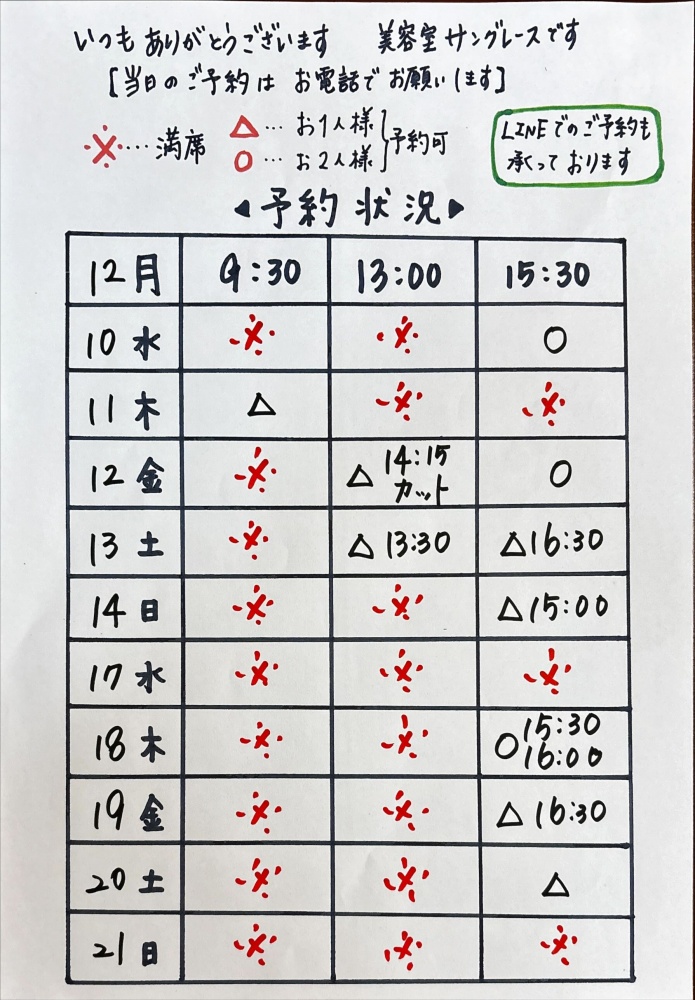 いつもありがとうございます 美容室サングレースです
[当日のご予約は お電話で お願いします]
※… 満席
△… お1人様
○… お2人様
予約可
LINEでのご予約も
承っております
◀予約状況▶
12月 9:30 13:00 15:30
10 水 ※ ※ ○
11 木 △ ※ ※
12 金 ※ △ 14:15 カット ○
13 土 ※ △ 13:30 △16:30
14 日 ※ ※ △15:00
17 水 ※ ※ ※
18 木 ※ ※ ○ 15:30 16:00
19 金 ※ ※ △ 16:30
20 土 ※ ※ △
21 日 ※ ※ ※